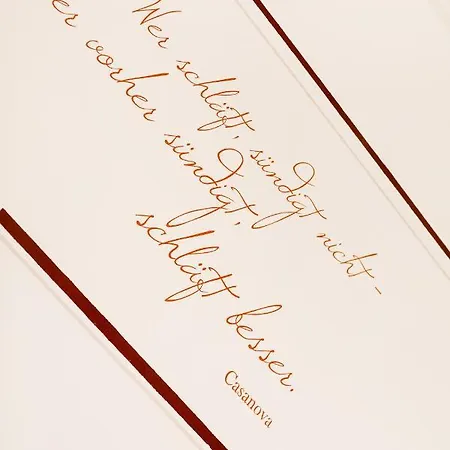 Wer schläft, sündigt nicht -
er vorher sündigt,
schläft besser.
Casanova